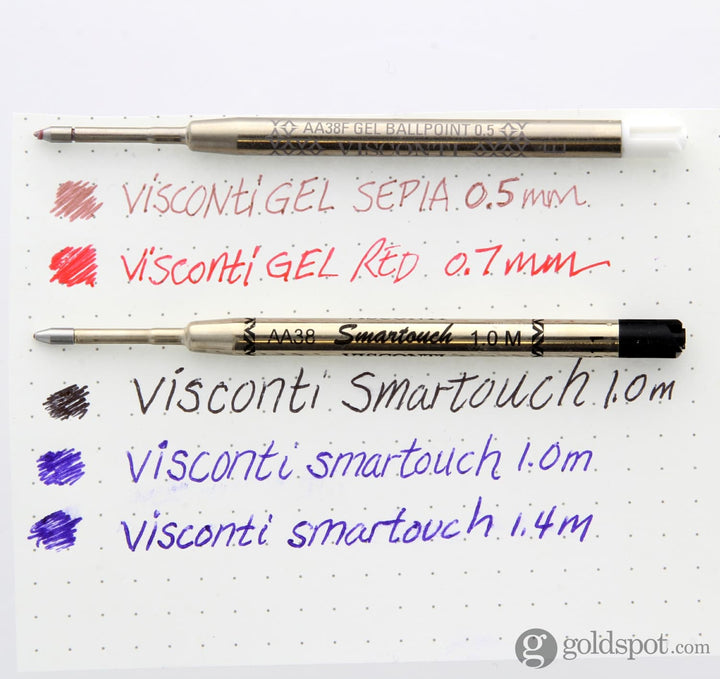 AA38F GEL BALLPOINT 0.5
VISCONTI
VISCONTI GEL SEPIA 0.5mm
VISCONTI GEL RED 0.7mm
AA38 Smartouch 1.0 M
VISCONTI Smartouch 1.0m
VISCONTI smartouch 1.0m
VISCONTI smartouch 1.4m
g goldspot.com®